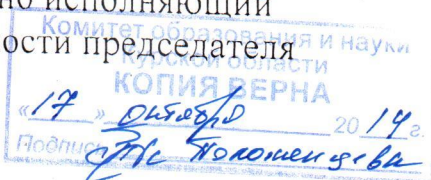 но исполняющий
ости председателя
Комитет образования и науки
Курской области
КОПИЯ ВЕРНА
«17» октября 2014 г.
Подпись Положенцева